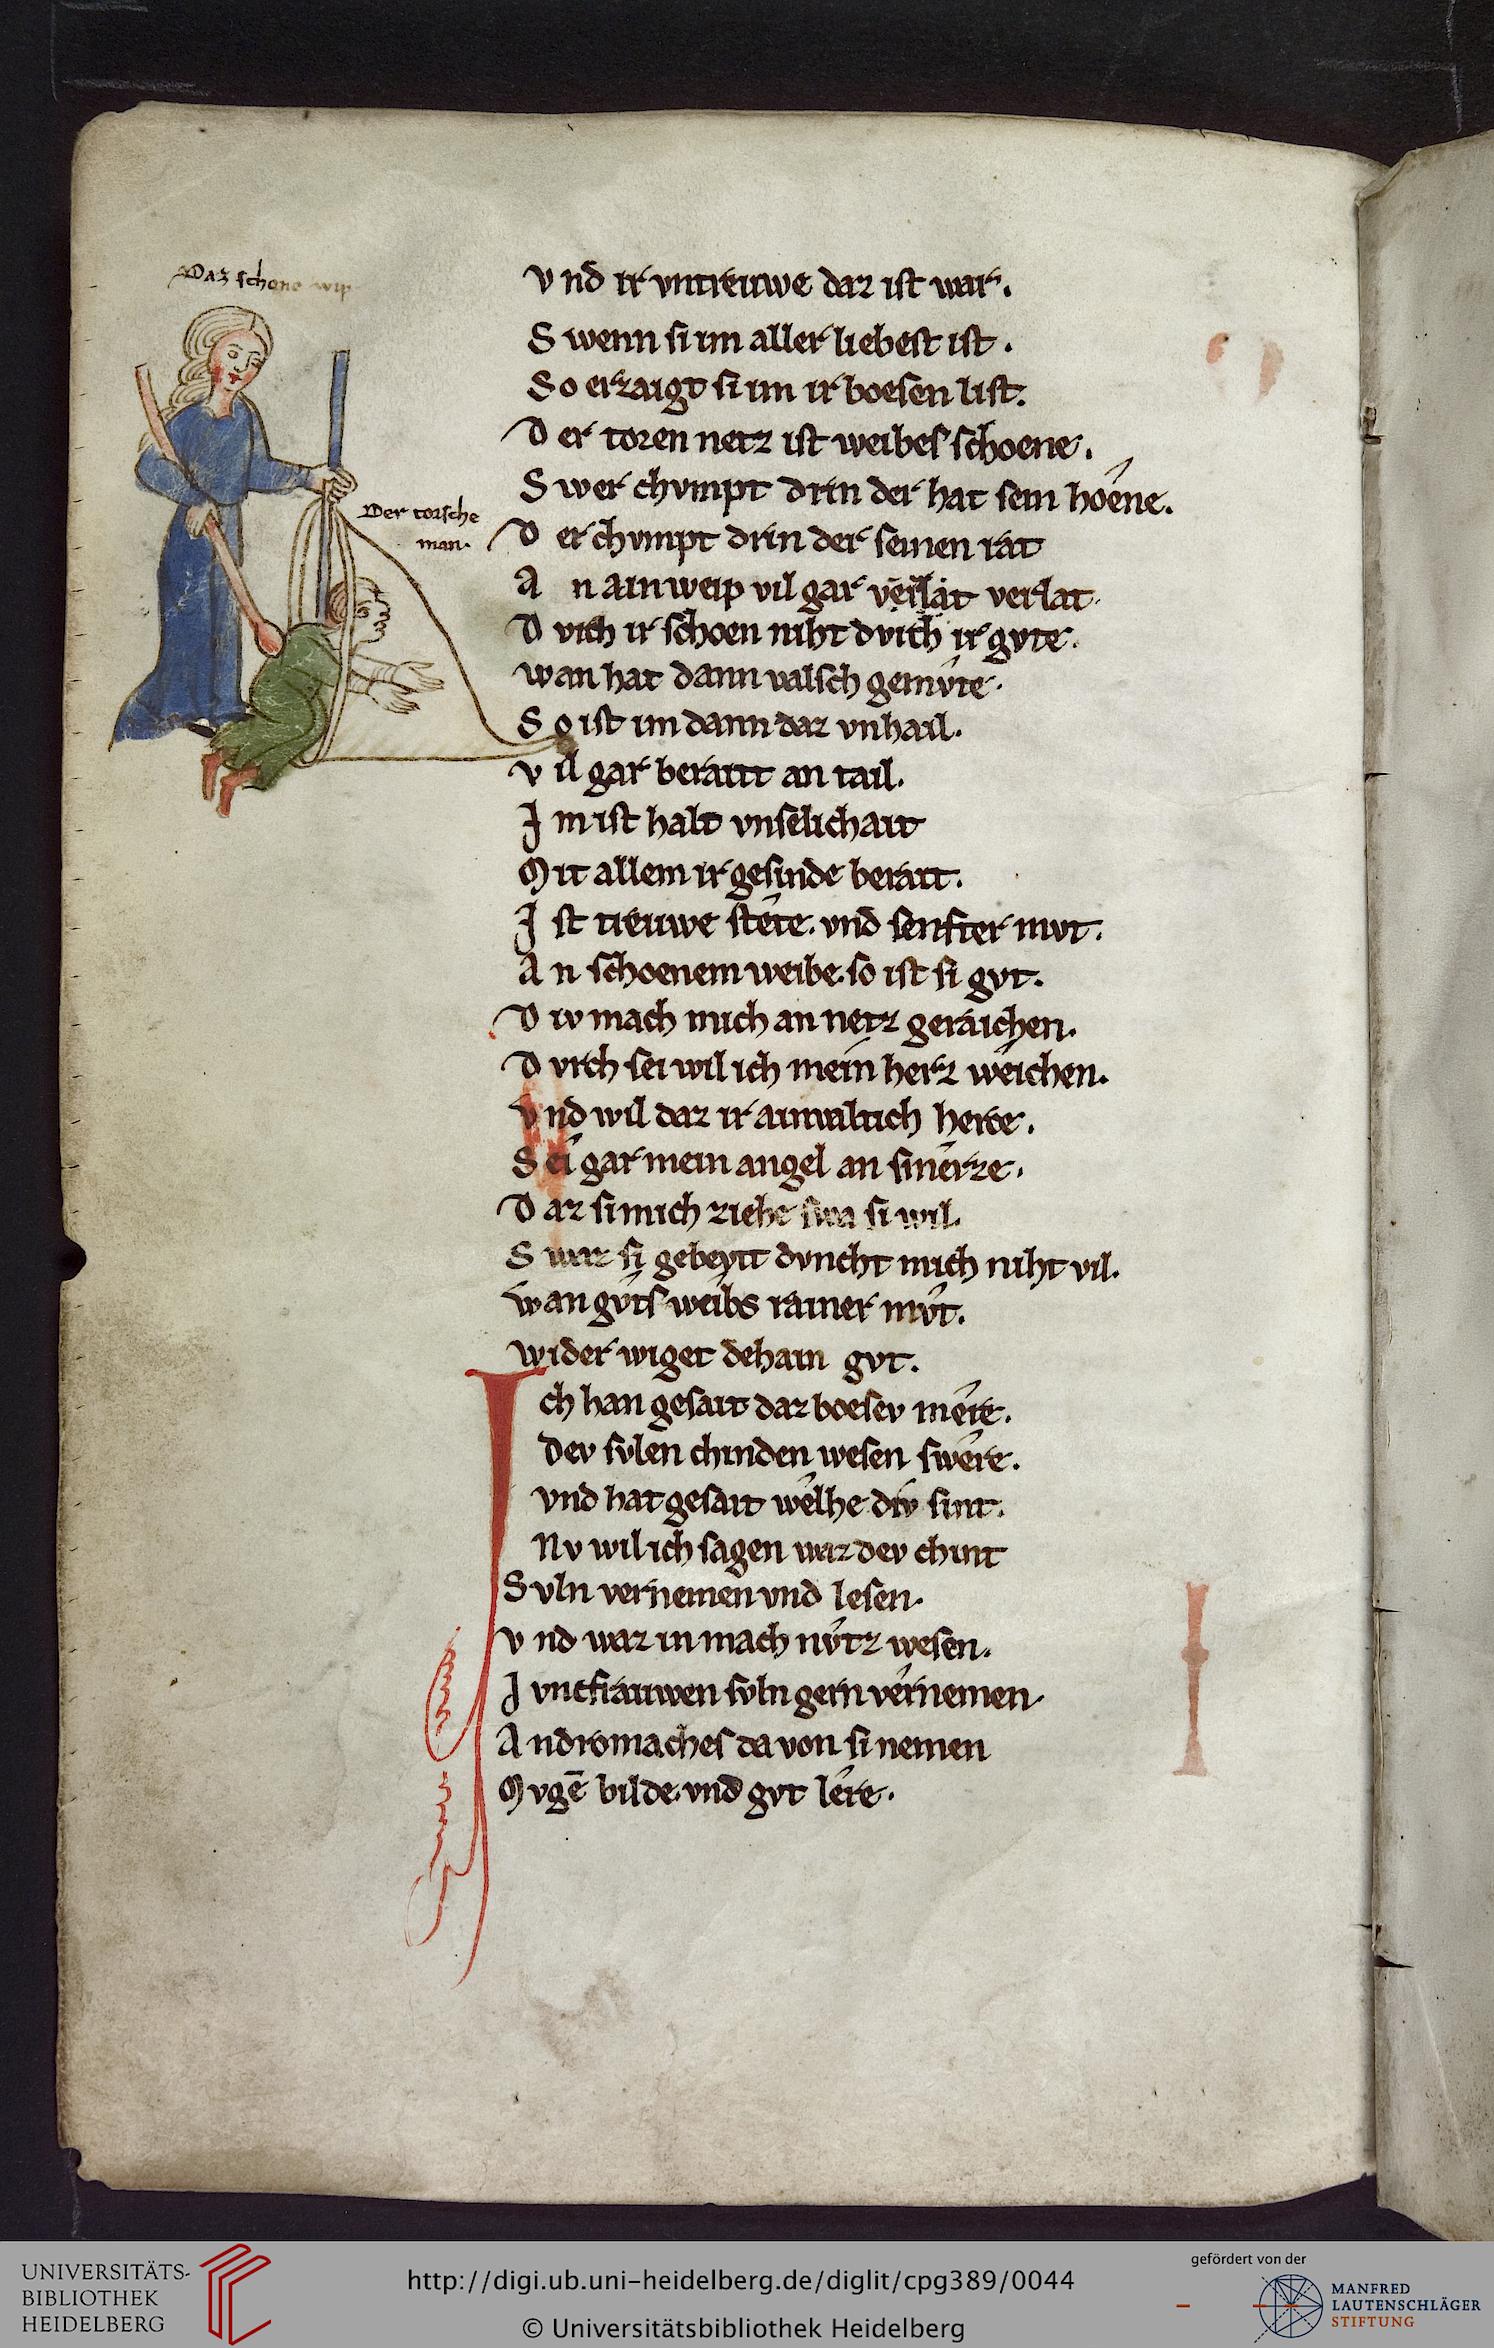 Daz schone wip
Der torsche
man.
Vnd ir vntreuwe daz ist war.
Swenn si im aller liebest ist.
So erzaigt si im ir boesen list.
Der toren netz ist weibes schoene.
Swer chvmpt drin der hat sein hoene.
Der chvmpt drin der seinen rat
An ain weip vil gar verlat verlat.
Dvrch ir schoen niht dvrch ir gvte.
wan hat dann valsch gemvte.
So ist im dann daz vnhail.
vil gar beraitt an tail.
Im ist halt vnselichait
Mit allem ir gesinde berait.
Ist treuwe stete. vnd senfter mvt.
An schoenem weibe. so ist si gvt.
Div mach mich an netz geraichen.
Dvrch sei wil ich mein herz weichen.
vnd wil daz ir ainvaltich herze.
Sei gar mein angel an smerze.
Daz si mich ziehe swa si wil.
Swaz si gebeytt dvncht mich niht vil.
wan gvts weibs rainer mvt.
wider wiget dehain gvt.
Ich han gesait daz boesev mere.
Dev svlen chinden wesen swere.
vnd hat gesait welhe div sint.
Nv wil ich sagen waz dev chint
Svln vernemen vnd lesen.
vnd waz in mach nvtz wesen.
Ivncfrauwen svln gern vernemen.
Andromaches da von si nemen
Mvgē bilde. vnd gvt lere.
UNIVERSITÄTS-
BIBLIOTHEK
HEIDELBERG
http://digi.ub.uni-heidelberg.de/diglit/cpg389/0044
© Universitätsbibliothek Heidelberg
gefördert von der
MANFRED
LAUTENSCHLÄGER
STIFTUNG